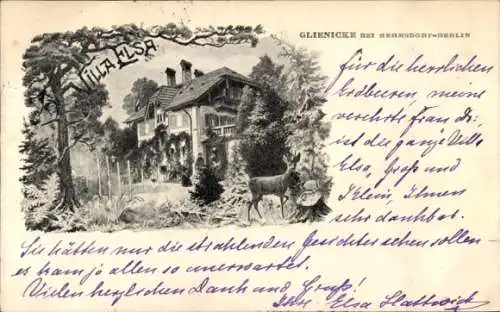 VILLA ELSA
GLIENICKE BEI HERMSDORF-BERLIN
Für die herrlichen
Erdbeeren, meine
verehrte Frau Dr:
ist die ganze Villa
Elsa, Groß und
Klein, Ihnen
sehr dankbar.
Sie hätten nur die strahlenden Gesichter sehen sollen –
es kam ja allen so unerwartet.
Vielen herzlichen Dank und Gruß!
Ihre Elsa